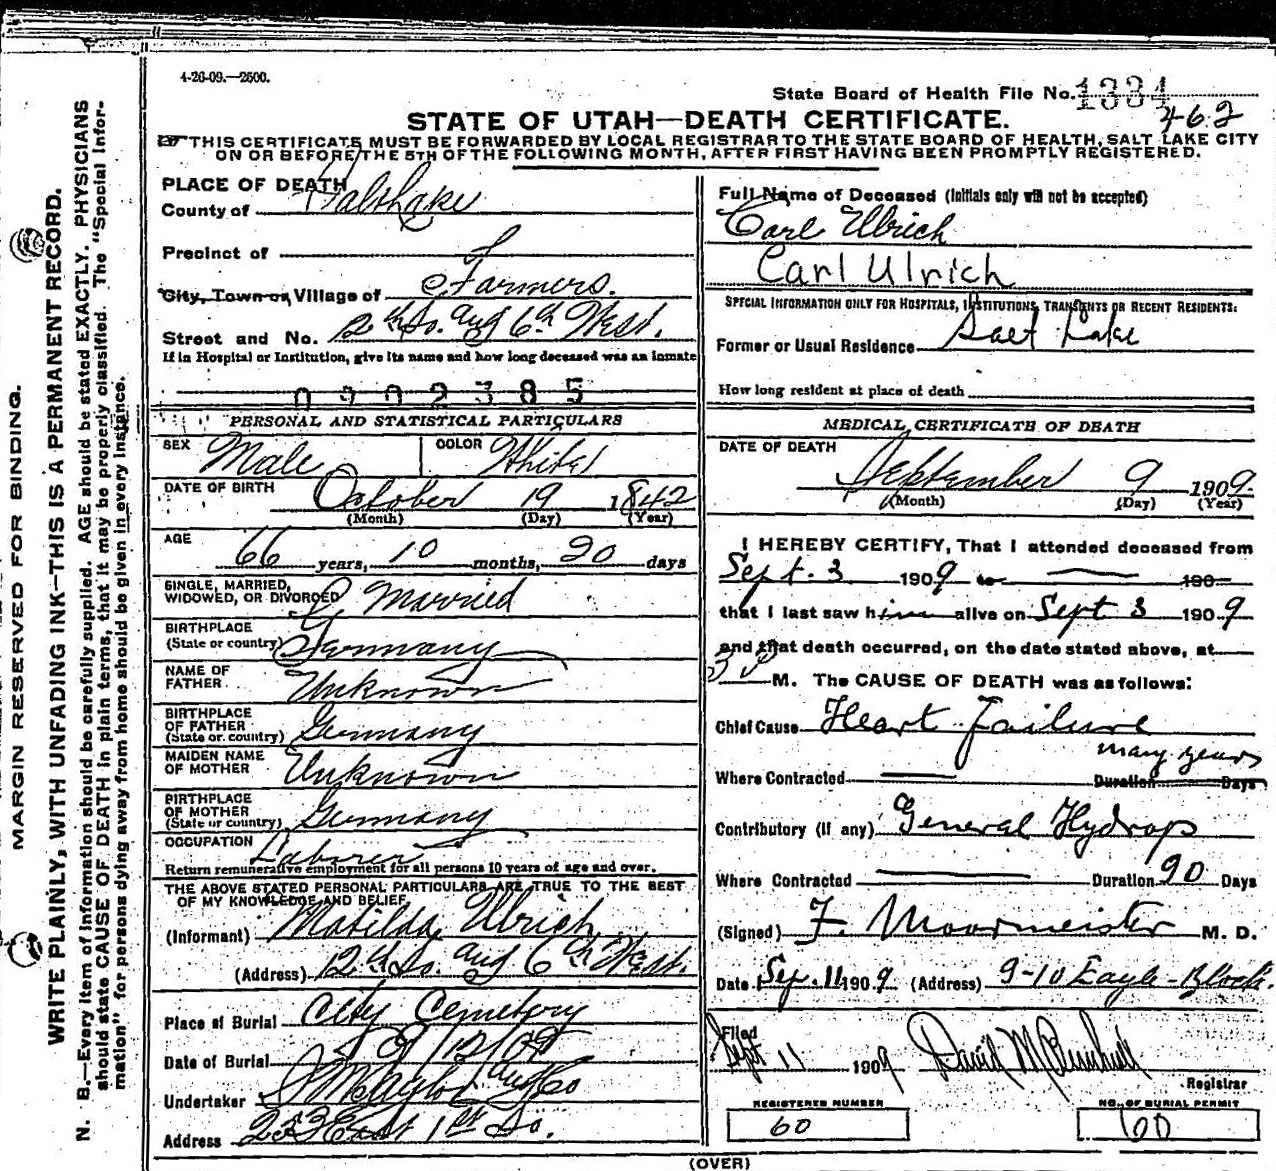 4-26-09.—2500.
State Board of Health File No. 1334
462
STATE OF UTAH—DEATH CERTIFICATE.
THIS CERTIFICATE MUST BE FORWARDED BY LOCAL REGISTRAR TO THE STATE BOARD OF HEALTH, SALT LAKE CITY
ON OR BEFORE THE 5TH OF THE FOLLOWING MONTH, AFTER FIRST HAVING BEEN PROMPTLY REGISTERED.
MARGIN RESERVED FOR BINDING.
WRITE PLAINLY, WITH UNFADING INK—THIS IS A PERMANENT RECORD.
N. B.—Every item of information should be carefully supplied. AGE should be stated EXACTLY. PHYSICIANS
should state CAUSE OF DEATH in plain terms, that it may be properly classified. The "Special Infor-
mation" for persons dying away from home should be given in every instance.
PLACE OF DEATH
County of Salt Lake
Precinct of
City, Town or Village of Farmers.
Street and No. 12th So. and 6th West.
If in Hospital or Institution, give its name and how long deceased was an inmate
0902385
PERSONAL AND STATISTICAL PARTICULARS
SEX Male COLOR White
DATE OF BIRTH October 19 1842
(Month) (Day) (Year)
AGE 66 years, 10 months, 20 days
SINGLE, MARRIED,
WIDOWED, OR DIVORCED Married
BIRTHPLACE
(State or country) Germany
NAME OF
FATHER Unknown
BIRTHPLACE
OF FATHER
(State or country) Germany
MAIDEN NAME
OF MOTHER Unknown
BIRTHPLACE
OF MOTHER
(State or country) Germany
OCCUPATION Laborer
Return remunerative employment for all persons 10 years of age and over.
THE ABOVE STATED PERSONAL PARTICULARS ARE TRUE TO THE BEST
OF MY KNOWLEDGE AND BELIEF
(Informant) Matilda Ulrich
(Address) 12th So. and 6th West.
Place of Burial City Cemetery
Date of Burial 9/12/09
Undertaker
Address 253 East 1st So.
Full Name of Deceased (Initials only will not be accepted)
Carl Ulrich
Carl Ulrich
SPECIAL INFORMATION ONLY FOR HOSPITALS, INSTITUTIONS, TRANSIENTS OR RECENT RESIDENTS:
Former or Usual Residence Salt Lake
How long resident at place of death
MEDICAL CERTIFICATE OF DEATH
DATE OF DEATH
September 9 1909.
(Month) (Day) (Year)
I HEREBY CERTIFY, That I attended deceased from
Sept. 3 1909 to 190
that I last saw him alive on Sept 3 1909
and that death occurred, on the date stated above, at
M. The CAUSE OF DEATH was as follows:
Chief Cause Heart Failure
many years
Where Contracted Duration Days
Contributory (if any) General Hydrops
Where Contracted Duration 90 Days
(Signed) F. Moormeister M. D.
Date Sep. 11 1909 (Address) 9-10 Eagle-Block.
Filed
Sept 11 1909
Registrar
REGISTERED NUMBER
60
NO. OF BURIAL PERMIT
60
(OVER)